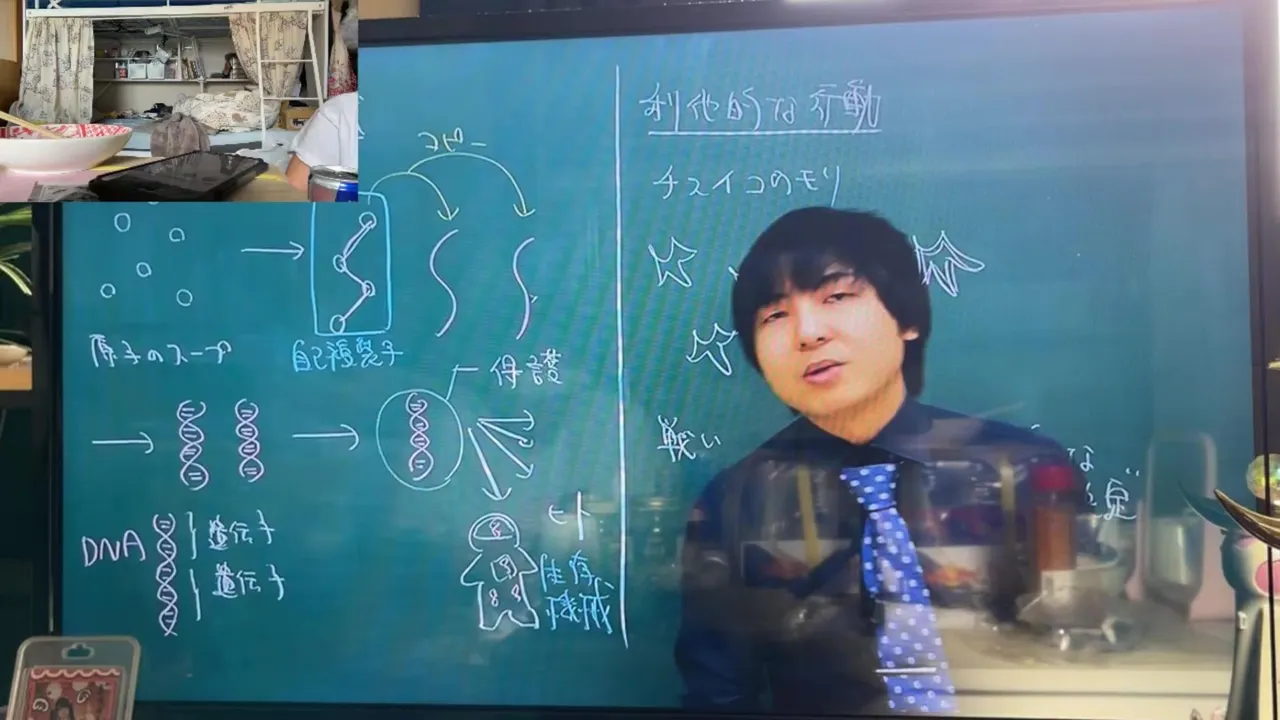 コピー
原子のスープ
自己複製子
保護
DNA
遺伝子
遺伝子
ヒト
生存
機械
利他的な行動
チスイコウモリ
戦い
な